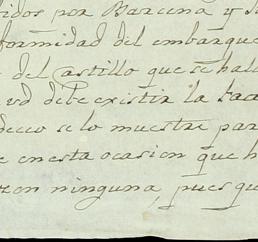 idos por Barcena y
formidad del embarque
del Castillo que se hal
vd debe existir la
deceo se lo muestre par
e en esta ocasion que h
zon ninguna, pues qu